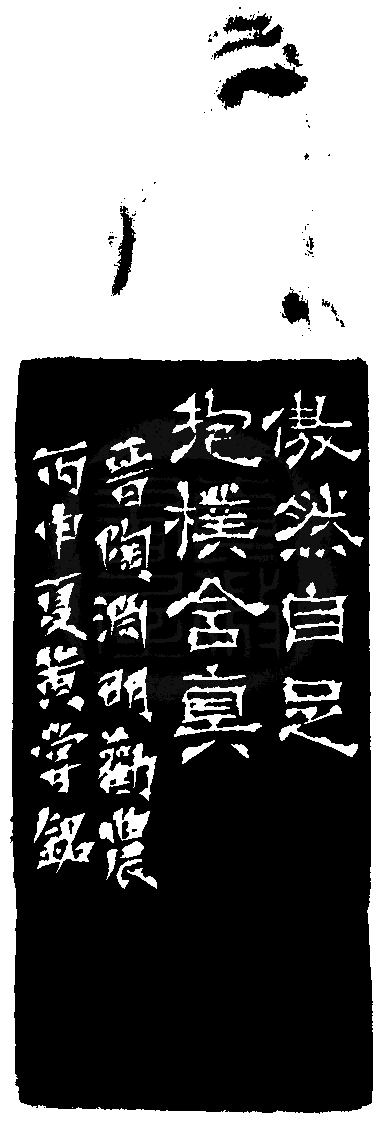 傲然自足
抱樸含真
晉陶淵明勸農
丙申夏黃嘗銘